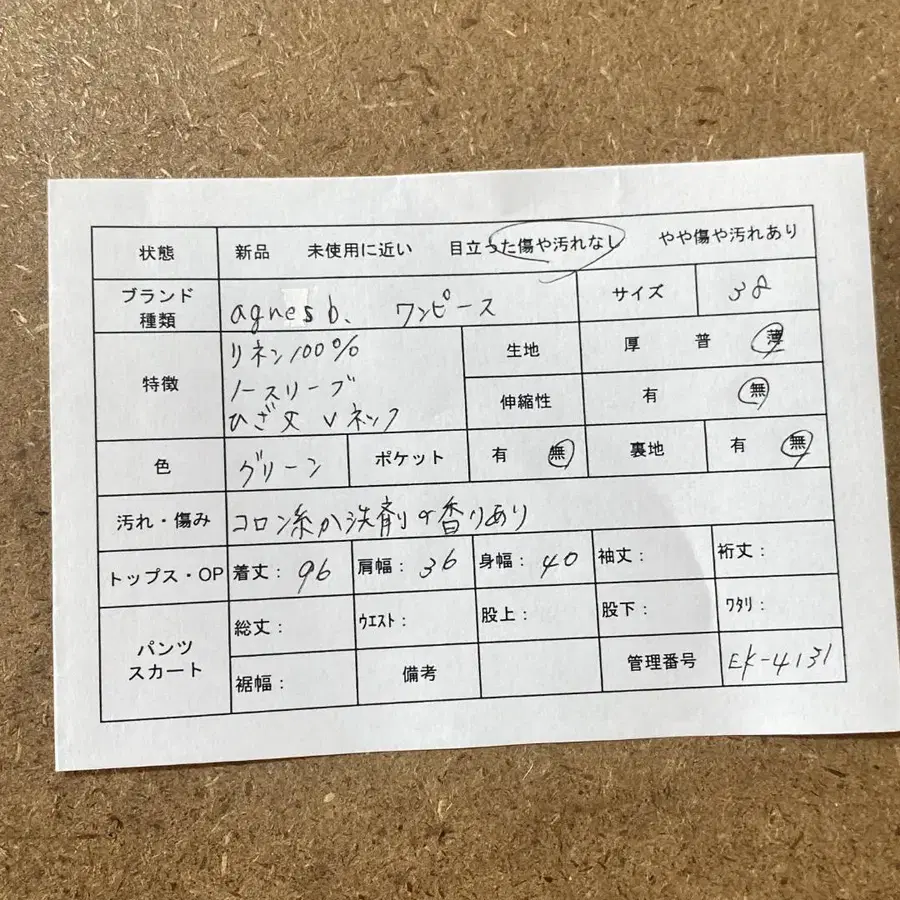 状態 新品 未使用に近い 目立った傷や汚れなし やや傷や汚れあり
ブランド 種類 agnes b. ワンピース サイズ 38
特徴 リネン100%
ノースリーブ
ひざ丈 Vネック
生地 厚 普 薄
伸縮性 有 無
色 グリーン ポケット 有 無 裏地 有 無
汚れ・傷み コロン系か洗剤の香りあり
トップス・OP 着丈: 96 肩幅: 36 身幅: 40 袖丈: 裄丈:
パンツ スカート 総丈: ウエスト: 股上: 股下: ワタリ:
裾幅: 備考 管理番号 EK-4131